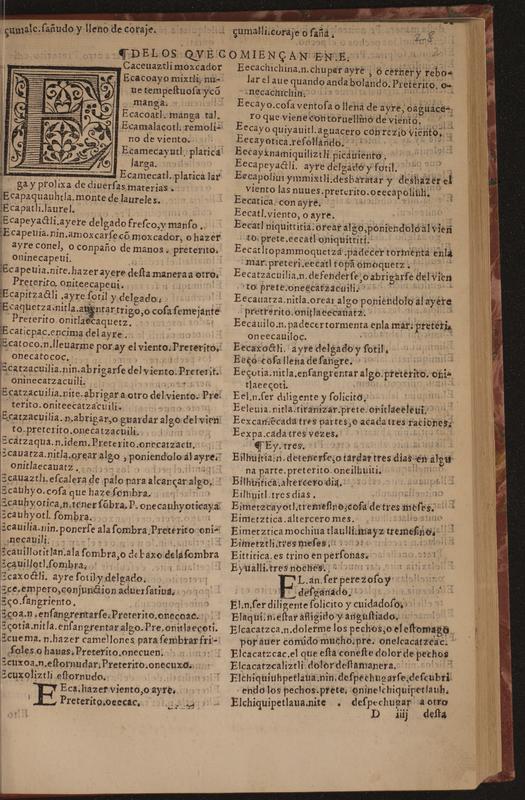 çumalc. sañudo y lleno de coraje.
çumalli. coraje o saña.
¶ DE LOS QVE COMIENÇAN EN E.
ECaceuaztli moxcador
Ecacoayo mixtli, nu-
ue tempestuosa y cõ
manga.
Ecacoatl. manga tal.
Ecamalacotl. remoli-
no de viento.
Ecamecayutl. platica
larga.
Ecamecatl. platica lar
ga y prolixa de diuersas materias.
Ecapaquauhtla. monte de laureles.
Ecapatli. laurel.
Ecapeyactli. ayre delgado fresco, y manso.
Ecapeuia. nin. amoxcarse cõ moxcador, o hazer
ayre conel, o con paño de manos. preterito.
oninecapeui.
Ecapeuia. nite. hazer ayre desta manera a otro.
Preterito. oniteecapeui.
Ecapitzactli. ayre sotil y delgado.
Ecaquetza. nitla. auentar trigo, o cosa semejante
Preterito onitlaecaquetz.
Ecaticpac. encima del ayre.
Ecatoco. n. lleuarme por ay el viento. Preterito.
onecatococ.
Ecatzacuilia. nin. abrigarse del viento. Preterit.
oninecatzacuili.
Ecatzacuilia. nite. abrigar a otro del viento. Pre
terito. oniteecatzacuili.
Ecatzacuilia. n. abrigar, o guardar algo del vien
to. preterito. onecatzacuili.
Ecatzaqua. n. idem. Preterito. onecatzacu.
Ecauatza. nitla. orear algo, poniendolo al ayre.
onitlaecauatz.
Ecauaztli. escalera de palo para alcançar algo.
Ecauhyo. cosa que haze sombra.
Ecauhyotica, n. tener sõbra. P. onecauhyoticaya
Ecauhyotl. sombra.
Ecauilia. nin. ponerse ala sombra. Preterito oni-
necauili.
Ecauillotitlan. ala sombra, o debaxo dela sombra
Ecauillotl. sombra.
Ecaxoctli. ayre sotil y delgado.
Ece. empero, conjunction aduersatiua.
Eço. sangriento.
Eçoa. n. ensangrentarse. Preterito. oneçoac.
Eçotia. nitla. ensangrentar algo. Pre. onitlaeçoti.
Ecuema. n. hazer camellones para sembrar fri-
soles o hauas. Preterito. onecuen.
Ecuxoa. n. estornudar. Preterito. onecuxo.
Ecuxoliztli estornudo.
EEca. hazer viento, o ayre.
Preterito. oeecac.
Eecachichina. n. chupar ayre, o cerner y rebo-
lar el aue quando anda bolando. Preterito. o-
necachichin.
Eecayo. cosa ventosa o llena de ayre, o aguace-
ro que viene con toruellino de viento.
Eecayo quiyauitl. aguacero con rezio viento.
Eecayotica. resollando.
Eecayxnamiquiliztli. picauiento.
Eecapeyactli. ayre delgado y sotil.
Eecapoliuh ymmixtli. desbaratar y deshazer el
viento las nuues. preterito. oeecapoliuh.
Eecatica. con ayre.
Eecatl. viento, o ayre.
Eecatl niquittitia. orear algo, poniendolo al vien
to. prete. eecatl oniquittiti.
Eecatl topammopotza. padecer tormenta enla
mar. preteri. eecatl topã omoquetz.
Eecatzacuilia. n. defenderse, o abrigarse del vien
to prete. oneecatzacuili.
Eecauatza. nitla. orear algo poniendolo al ayere
pretterito. onitlaeecauatz.
Eecauilo. n. padecer tormenta enla mar. preteri.
oneecauiloc.
Eecaxoctli. ayre delgado y sotil.
Eeço cosa llena de sangre.
Eeçotia. nitla. ensangrentar algo. preterito. oni-
tlaeeçoti.
Eel. n. ser diligente y solicito.
Eeleuia. nitla. tiranizar. prete. onitlaeeleui.
Eexcan. ẽ cada tres partes, o acada tres raciones.
Eexpa. cada tres vezes.
¶ Ey. tres.
Eilhuitia. n. detenerse, o tardar tres dias en algu
na parte. preterito. oneilhuiti.
Eilhuitica. altercero dia.
Eilhuitl tres dias.
Eimetzcayotl, tremesino, cosa de tres meses.
Eimetztica. altercero mes.
Eimetztica mochiua tlaulli. mayz tremesino.
Eimetztli, tres meses.
Eittitica. es trino en personas.
Eyualli. tres noches.
EL. an. ser perezoso y
desganado.
El. n. ser diligente solicito y cuidadoso.
Elaqui. n. estar afligido y angustiado.
Elcacatzca. n. dolerme los pechos, o el estomago
por auer comido mucho. pre. onelcacatzcac.
Elcacatzcac. el que esta coneste dolor de pechos
Elcacatzcaliztli dolor desta manera.
Elchiquiuhpetlaua. nin. despechugarse, descubri
endo los pechos. prete. oninelchiquipetlauh.
Elchiquipetlaua. nite. despechugar a otro
D iiij desta